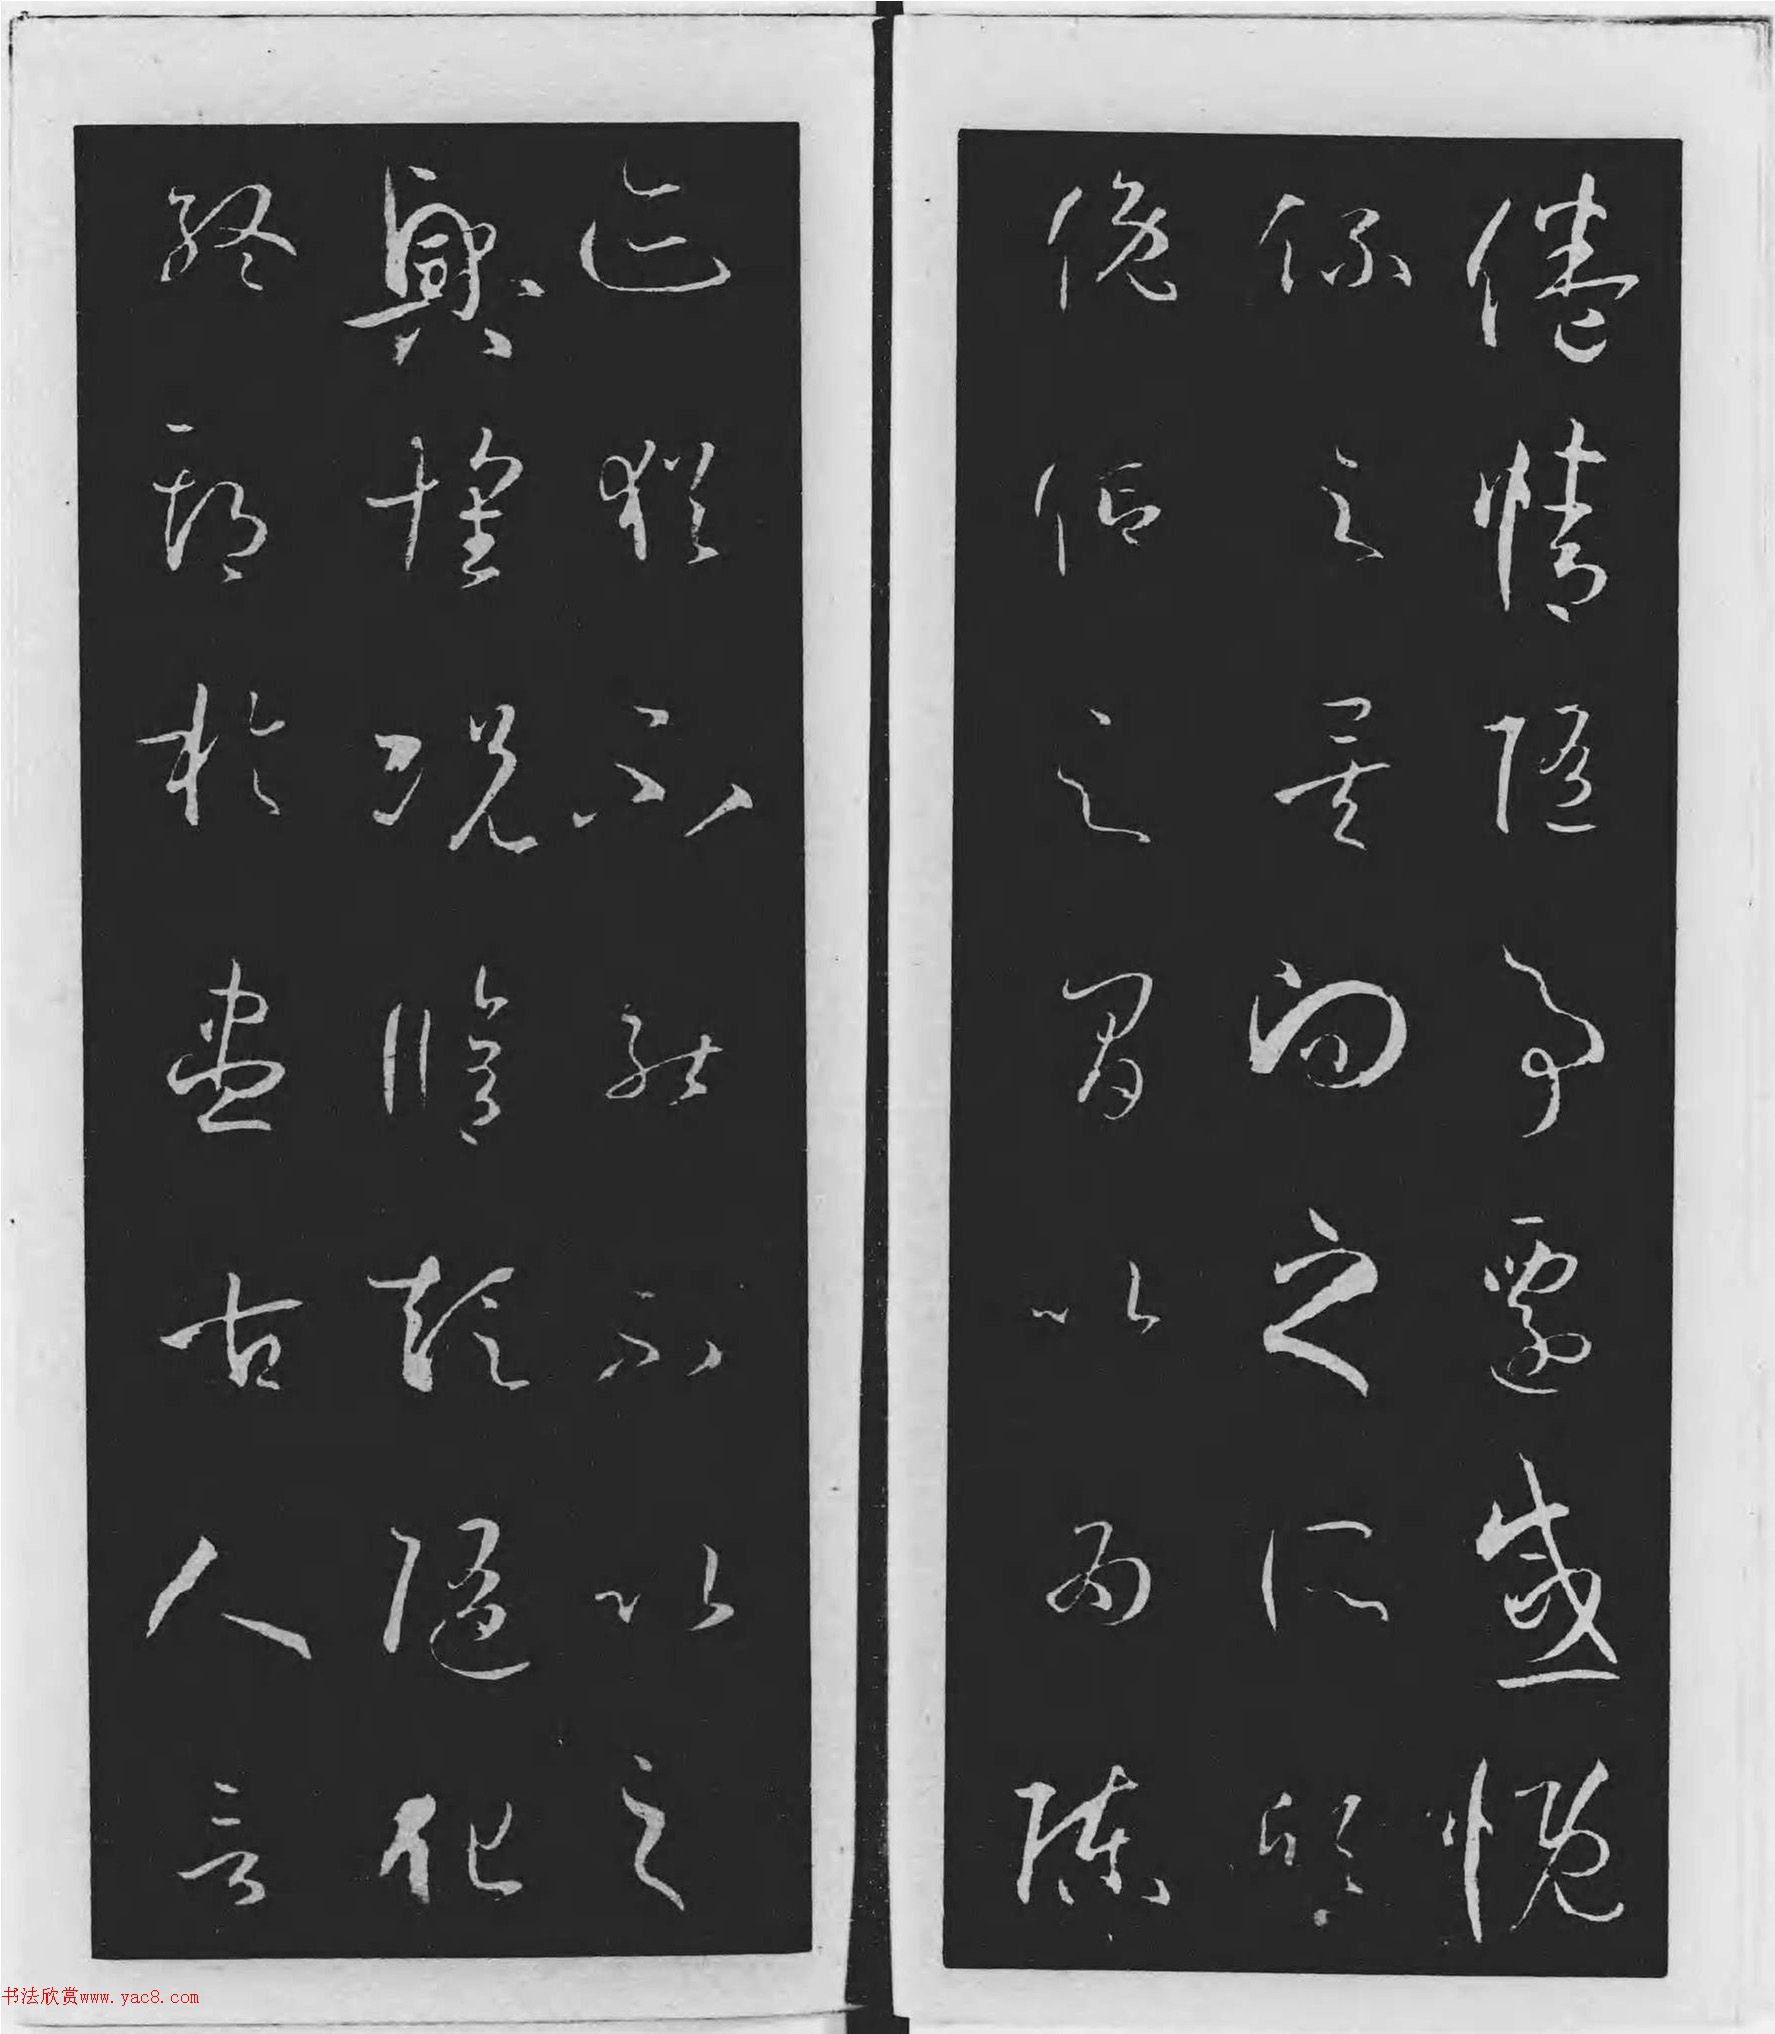 倦情随事遷感慨
係之矣向之所欣
俛仰之間以為陳
迹猶不能不以之
興懷況脩短随化
終期於盡古人云
书法欣赏www.yac8.com